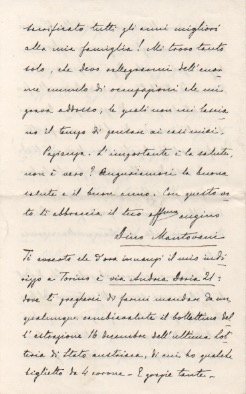 sacrificato tutti gli anni migliori
alla mia famiglia! Mi trovo tanto
solo, che devo rallegrarmi dell'enor-
me cumulo di occupazioni che mi
grava addosso, le quali non mi lascia-
no il tempo di pensare ai casi miei.
Pazienza. L'importante è la salute,
non è vero? Auguriamoci la buona
salute e il buon anno. Con questo vo-
to ti abbraccia il tuo affmo cugino
Dino Mantovani
Ti avverto che d'ora innanzi il mio indi-
rizzo a Torino è via Andrea Doria 21:
dove ti pregherei di farmi mandare da un
qualunque cambiavalute il bollettino del-
l'estrazione 16 dicembre dell'ultima lot-
teria di Stato austriaca, di cui ho qualche
biglietto da 4 corone. - E grazie tante. -